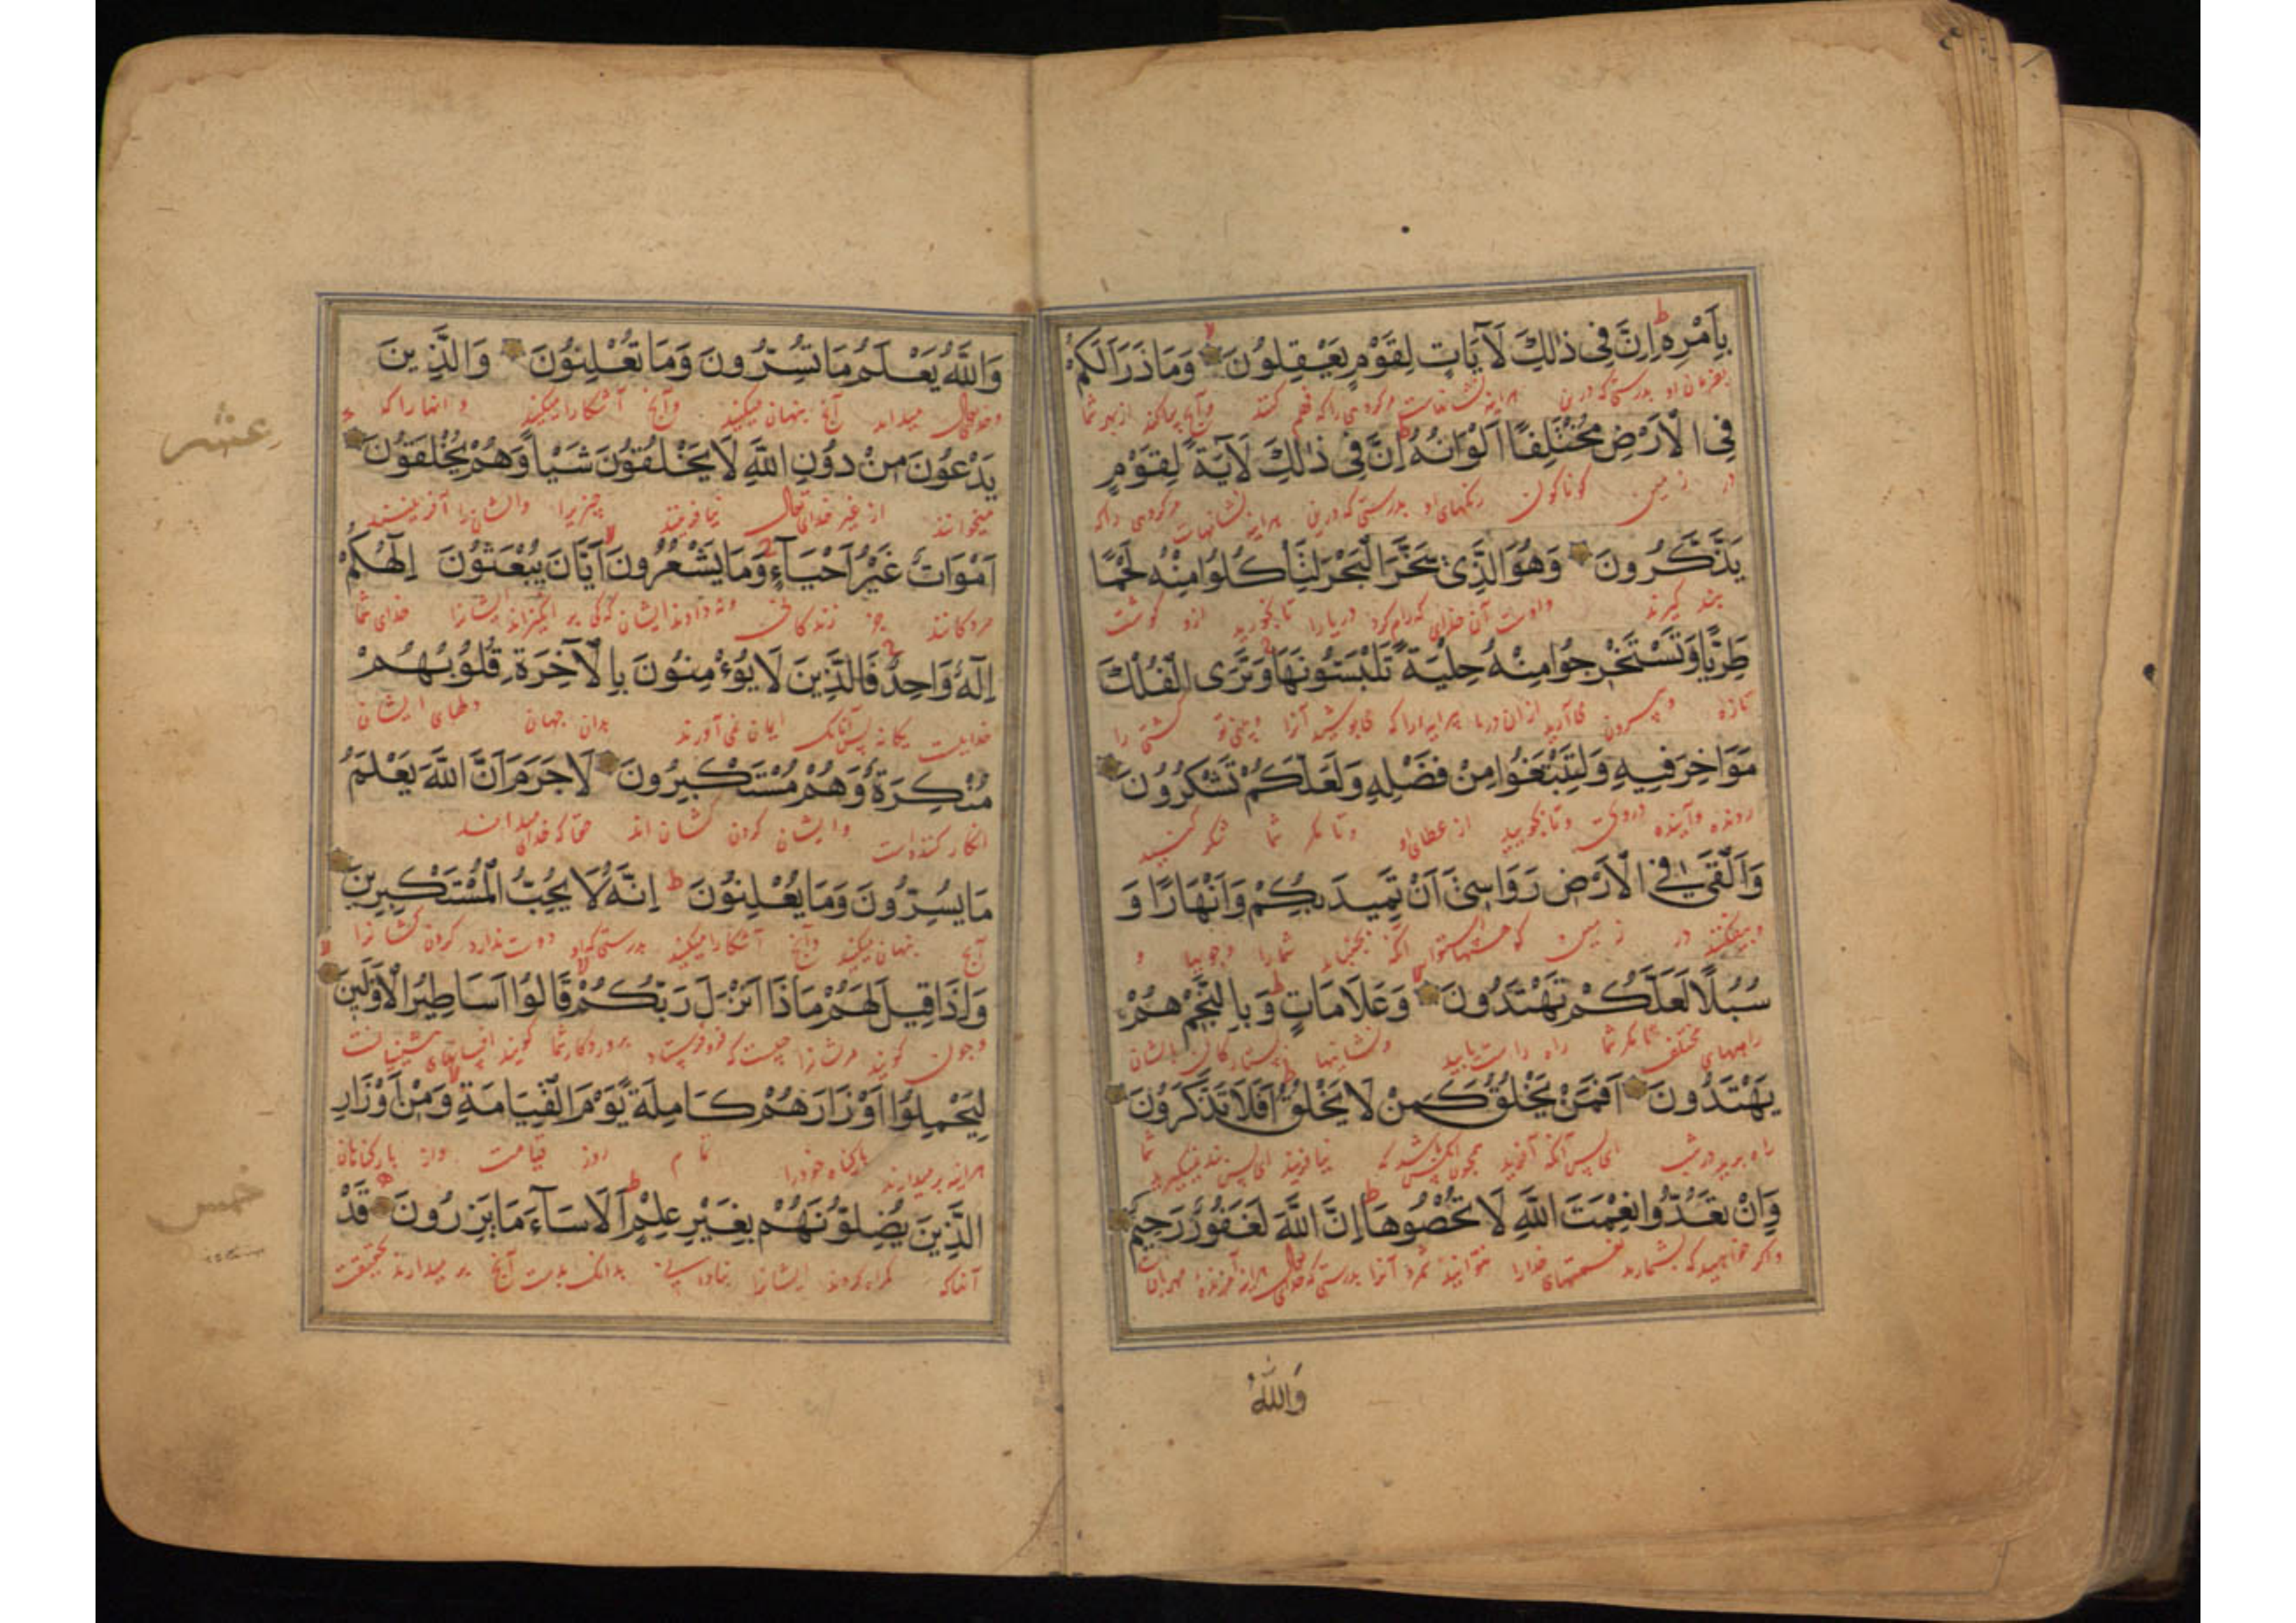 بِاَمْرِهِ ط اِنَّ فِی ذٰلِكَ لَآيَاتٍ لِقَوْمٍ يَعْقِلُونَ لا وَمَا ذَرَاَ لَكُمْ
بفرمان او بدرستی که درین هراینه نشانهاست مر کروهی را که فهم کنند وآنچه از بهر شما
فِی الْاَرْضِ مُخْتَلِفًا اَلْوَانُهُ ط اِنَّ فِی ذٰلِكَ لَآيَةً لِقَوْمٍ
در زمین کوناکون رنکهای او بدرستی که درین هراینه نشانیهاست مر کروهی راکه
يَذَّكَّرُونَ وَهُوَ الَّذِی سَخَّرَ الْبَحْرَ لِتَاْكُلُوا مِنْهُ لَحْمًا
پند کیرند واوست آن خدای که رام کرد دریارا تا بخورید ازو کوشت
طَرِيًّا وَتَسْتَخْرِجُوا مِنْهُ حِلْيَةً تَلْبَسُونَهَا وَتَرَى الْفُلْكَ
تازه وبیرون می آرید ازان دریا پیرایه راکه می پوشید آنرا و می بینی تو کشتی را
مَوَاخِرَ فِيهِ وَلِتَبْتَغُوا مِنْ فَضْلِهِ وَلَعَلَّكُمْ تَشْكُرُونَ
رونده وآینده دروی وتا بجویید از عطای او وتا مکر شما شکر کنید
وَاَلْقٰى فِی الْاَرْضِ رَوَاسِیَ اَنْ تَمِيدَ بِكُمْ وَاَنْهَارًا وَ
در زمین شمارا وجویها و
سُبُلًا لَعَلَّكُمْ تَهْتَدُونَ لا وَعَلَامَاتٍ ط وَبِالنَّجْمِ هُمْ
راههای مختلف تا مکر شما راه راست یابید ونشانیها ایشان
يَهْتَدُونَ اَفَمَنْ يَخْلُقُ كَمَنْ لَا يَخْلُقُ ط اَفَلَا تَذَكَّرُونَ
راه ای پس آنکه آفرید همچون آنکس باشد که نیافریند ای پس پند نمیکیرید شما
وَاِنْ تَعُدُّوا نِعْمَتَ اللّٰهِ لَا تُحْصُوهَا ط اِنَّ اللّٰهَ لَغَفُورٌ رَحِيمٌ
واکر خواهید که بشمارید نعمتهای خدارا نتوانید شمرد آنرا بدرستی که خدای تعالی هراینه آمرزنده مهربانست
وَاللّٰهُ
وَاللّٰهُ يَعْلَمُ مَا تُسِرُّونَ وَمَا تُعْلِنُونَ وَالَّذِينَ
وخدای تعالی میداند آنچ پنهان میکنید وآنچ آشکارا میکنید وانهارا که
عشر
يَدْعُونَ مِنْ دُونِ اللّٰهِ لَا يَخْلُقُونَ شَيْاً وَهُمْ يُخْلَقُونَ
میخوانند از غیر خدای تعالی نیافریند چیزیرا وایشانرا آفرینند
اَمْوَاتٌ غَيْرُ اَحْيَآءٍ وَمَا يَشْعُرُونَ لا اَيَّانَ يُبْعَثُونَ اِلٰهُكُمْ
مردکانند جز زندکانی ونه دانند ایشان که کی بر انکیزاند ایشانرا خدای شما
اِلٰهٌ وَاحِدٌ فَالَّذِينَ لَا يُؤْمِنُونَ بِالْآخِرَةِ قُلُوبُهُمْ
خداییست یکانه پس آنانک ایمان نمی آورند بدان جهان دلهای ایشان
مُنْكِرَةٌ وَهُمْ مُسْتَكْبِرُونَ لَا جَرَمَ اَنَّ اللّٰهَ يَعْلَمُ
انکار کننده است وایشان کردن کشان اند حقا که خدای میداند
مَا يُسِرُّونَ وَمَا يُعْلِنُونَ ط اِنَّهُ لَا يُحِبُّ الْمُسْتَكْبِرِينَ
آنچ پنهان میکنید وآنچ آشکارا میکنید بدرستی که او دوست ندارد کردن کشانرا
وَاِذَا قِيلَ لَهُمْ مَاذَا اَنْزَلَ رَبُّكُمْ لا قَالُوا اَسَاطِيرُ الْاَوَّلِينَ لا
وچون کویند مرشانرا چیست که فرو فرستاد پروردکار شما کویند افسانهای پیشینیانست
لِيَحْمِلُوا اَوْزَارَهُمْ كَامِلَةً يَوْمَ الْقِيَامَةِ لا وَمِنْ اَوْزَارِ
هراینه بر میدارند بار کناه خودرا تمام روز قیامت واز بار کناهان
خمس
الَّذِينَ يُضِلُّونَهُمْ بِغَيْرِ عِلْمٍ ط اَلَا سَآءَ مَا يَزِرُونَ قَدْ
آنها که کمراه کردند ایشانرا بنادانی بدانک بدست آنچ بر میدارند بحقیقت